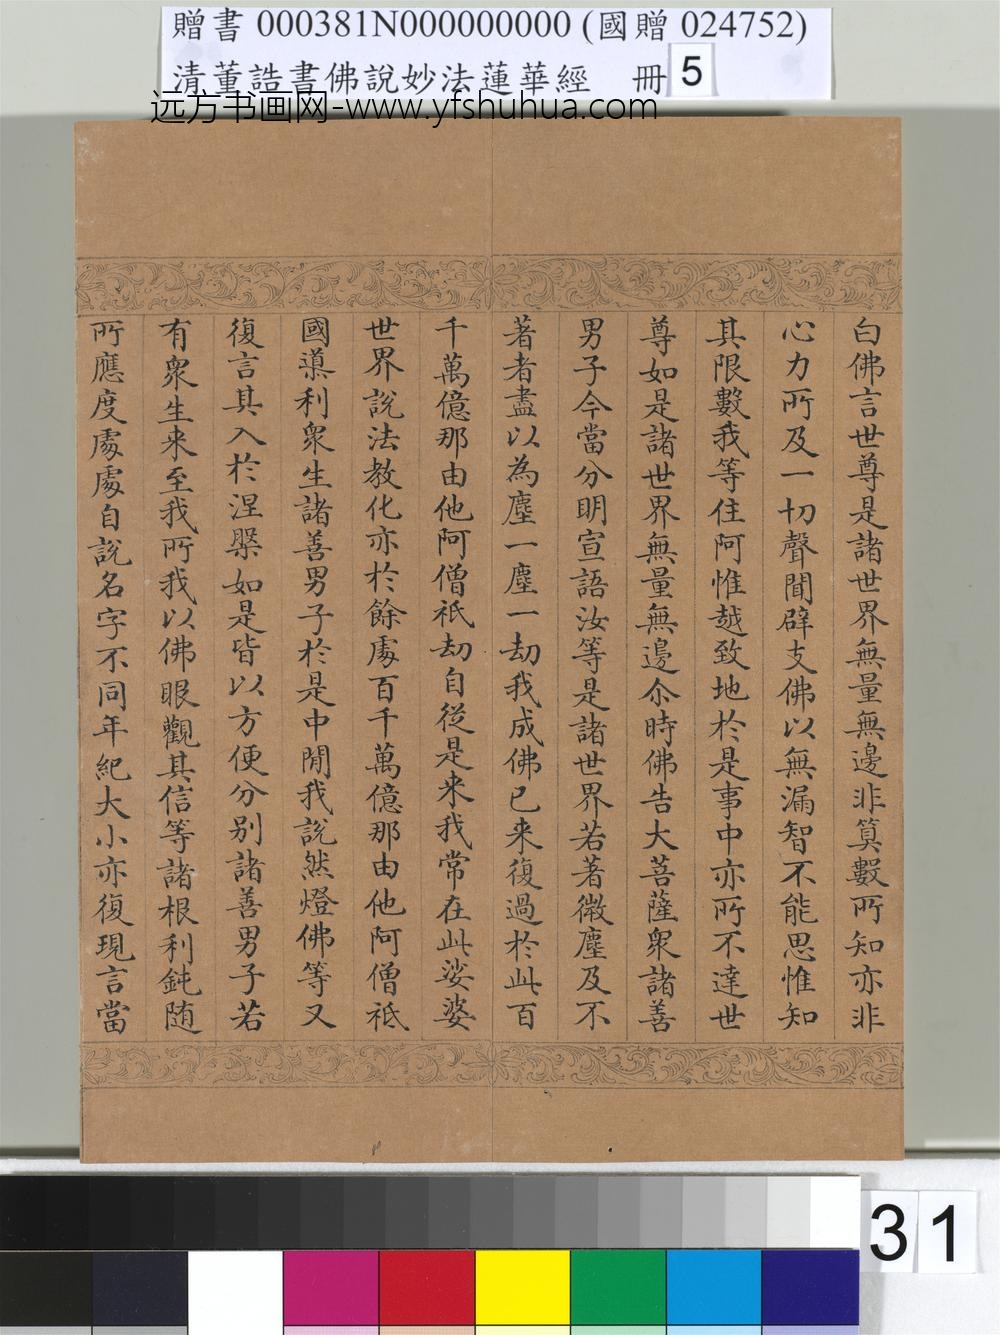 贈書 000381N000000000 (國贈 024752)
清董誥書佛說妙法蓮華經 冊 5
远方书画网-www.yfshuhua.com
白佛言世尊是諸世界無量無邊非筭數所知亦非
心力所及一切聲聞辟支佛以無漏智不能思惟知
其限數我等住阿惟越致地於是事中亦所不達世
尊如是諸世界無量無邊尒時佛告大菩薩衆諸善
男子今當分明宣語汝等是諸世界若著微塵及不
著者盡以為塵一塵一劫我成佛已来復過於此百
千萬億那由他阿僧祇劫自從是来我常在此娑婆
世界說法教化亦於餘處百千萬億那由他阿僧祇
國導利衆生諸善男子於是中閒我說然燈佛等又
復言其入於涅槃如是皆以方便分別諸善男子若
有衆生来至我所我以佛眼觀其信等諸根利鈍随
所應度處處自說名字不同年紀大小亦復現言當
31